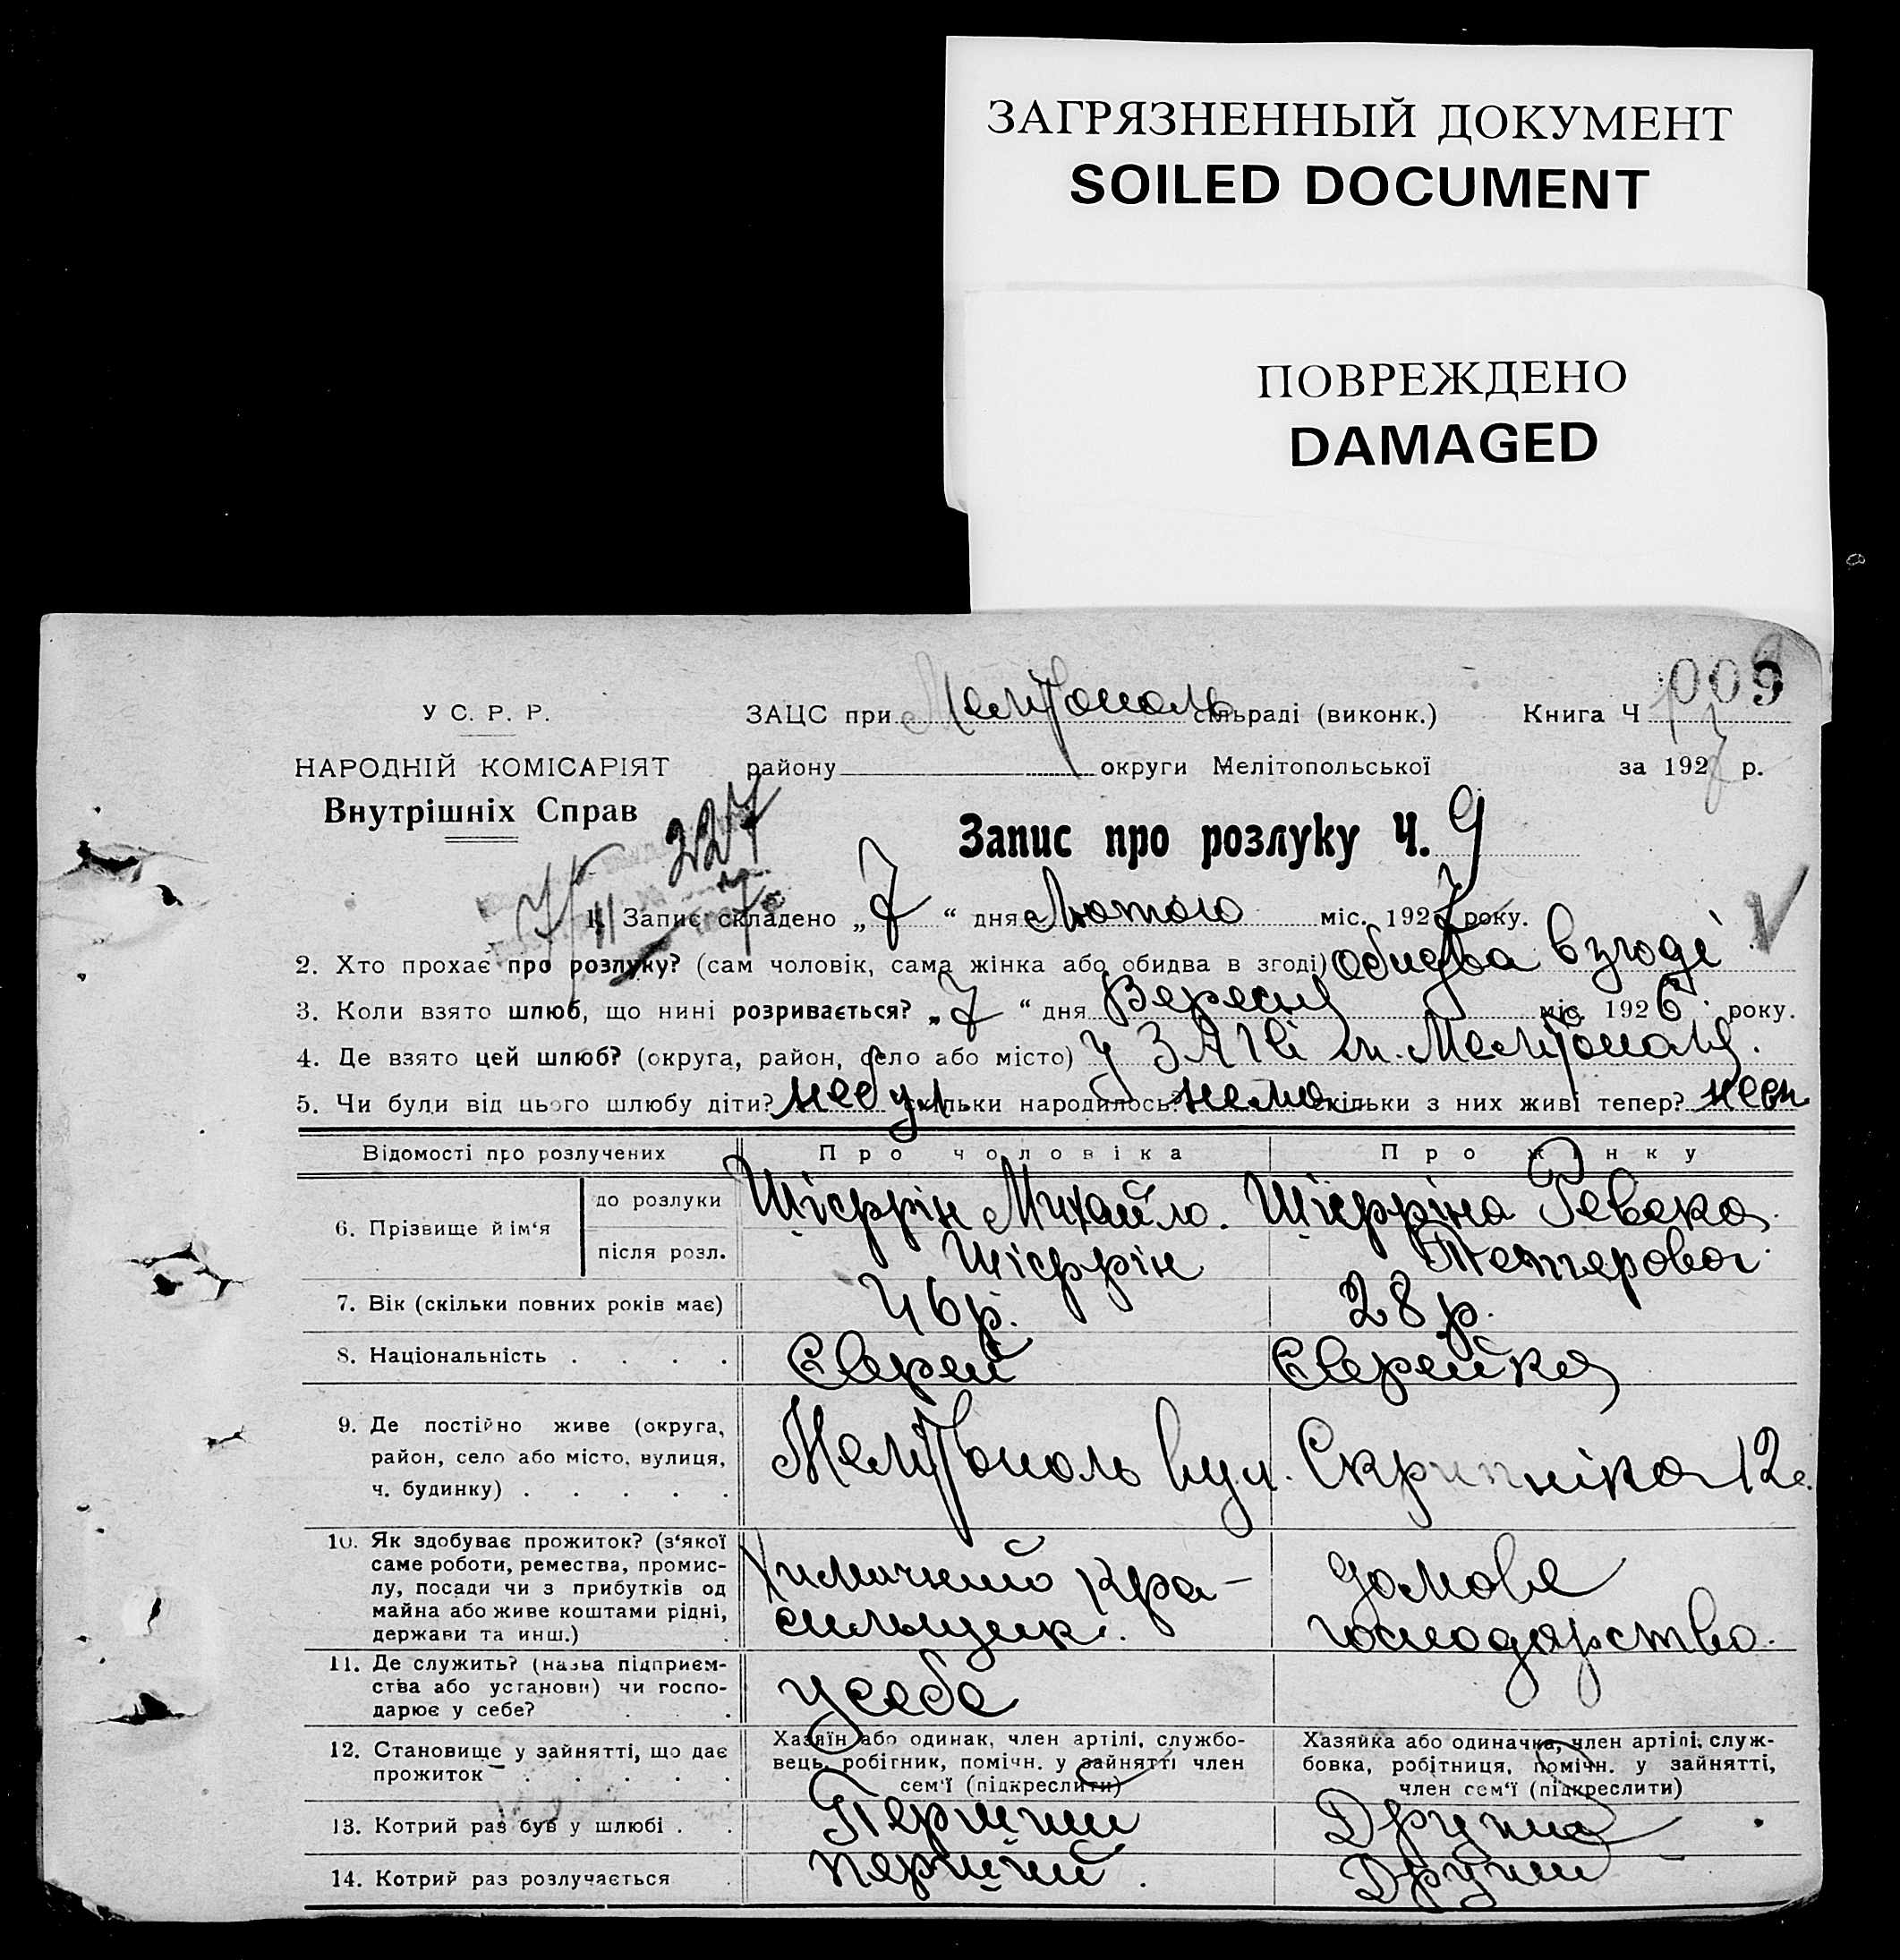 ЗАГРЯЗНЕННЫЙ ДОКУМЕНТ
SOILED DOCUMENT
ПОВРЕЖДЕНО
DAMAGED
009
У С. Р. Р.
ЗАЦС при Мелітополь сільраді (виконк.) Книга Ч
НАРОДНІЙ КОМІСАРІЯТ
району округи Мелітопольської за 1927 р.
Внутрішніх Справ
227
Запис про розлуку Ч. 9
1. Запис складено „7“ дня Лютого міс. 1927 року.
2. Хто прохає про розлуку? (сам чоловік, сама жінка або обидва в згоді) обидва в згоді
3. Коли взято шлюб, що нині розривається? „7“ дня Вересня міс. 1926 року.
4. Де взято цей шлюб? (округа, район, село або місто) у ЗАГСі м. Мелітополя.
5. Чи були від цього шлюбу діти? небул скільки народилось? нема скільки з них живі тепер?
Відомості про розлучених Про чоловіка Про жінку
6. Прізвище й ім'я до розлуки Шіфрін Михайло. Шіфріна Ревека.
після розл. Шіфрін
7. Вік (скільки повних років має) 46 р. 28 р.
8. Національність . . . . Єврей Єврейка
9. Де постійно живе (округа,
район, село або місто, вулиця,
ч. будинку) . . . . . Мелітополь вул. Скрипніка 12
10. Як здобуває прожиток? (з'якої
саме роботи, ремества, промис-
лу, посади чи з прибутків од
майна або живе коштами рідні,
держави та инш.) .
кра-
сильщик. домове
господарство.
11. Де служить? (назва підприєм-
ства або установи) чи госпо-
дарює у себе? . . усебе
12. Становище у зайнятті, що дає
прожиток . . . . .
Хазяїн або одинак, член артілі, службо-
вець, робітник, помічн. у зайнятті член
сем'ї (підкреслити)
Хазяйка або одиначка, член артілі, служ-
бовка, робітниця, помічн. у зайнятті,
член сем'ї (підкреслити)
13. Котрий раз був у шлюбі . . Перший
14. Котрий раз розлучається . перший. Другий